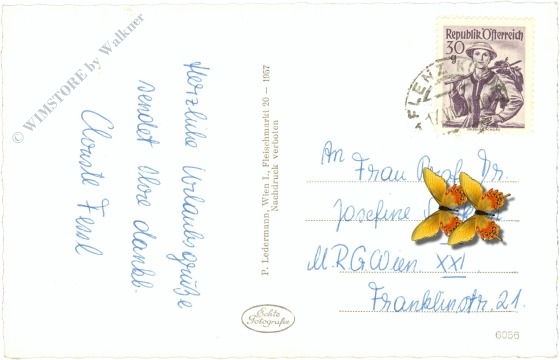 © WIMSTORE by Walkner
Herzliche Urlaubsgrüße
sendet Ihre dankb.
Fessl
P. Ledermann, Wien I., Fleischmarkt 20 – 1957
Nachdruck verboten
Echte
Fotografie
Republik Österreich
30
g
FLEN
An Frau Prof. Dr.
Josefine
M. R. G. Wien XXI.
Franklinstr. 21.
6056